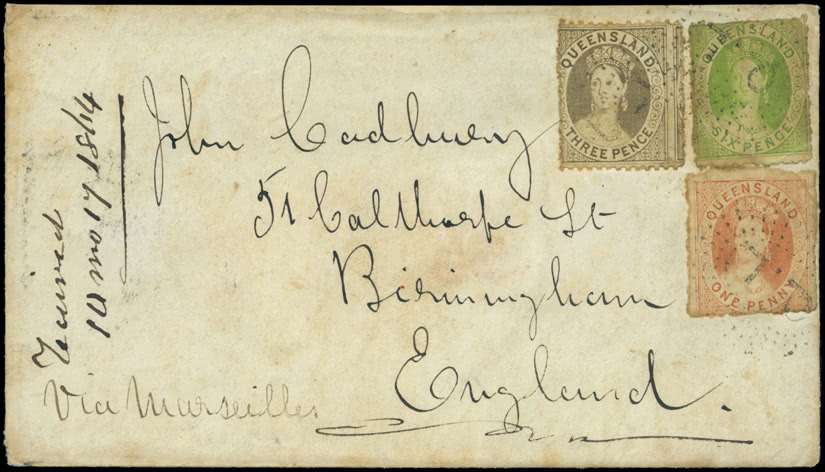 John Cadbury
51 Calthorpe St
Birmingham
England.
10 mo 17 1864
Via Marseilles
QUEENSLAND
THREE PENCE
QUEENSLAND
SIX PENCE
QUEENSLAND
ONE PENNY